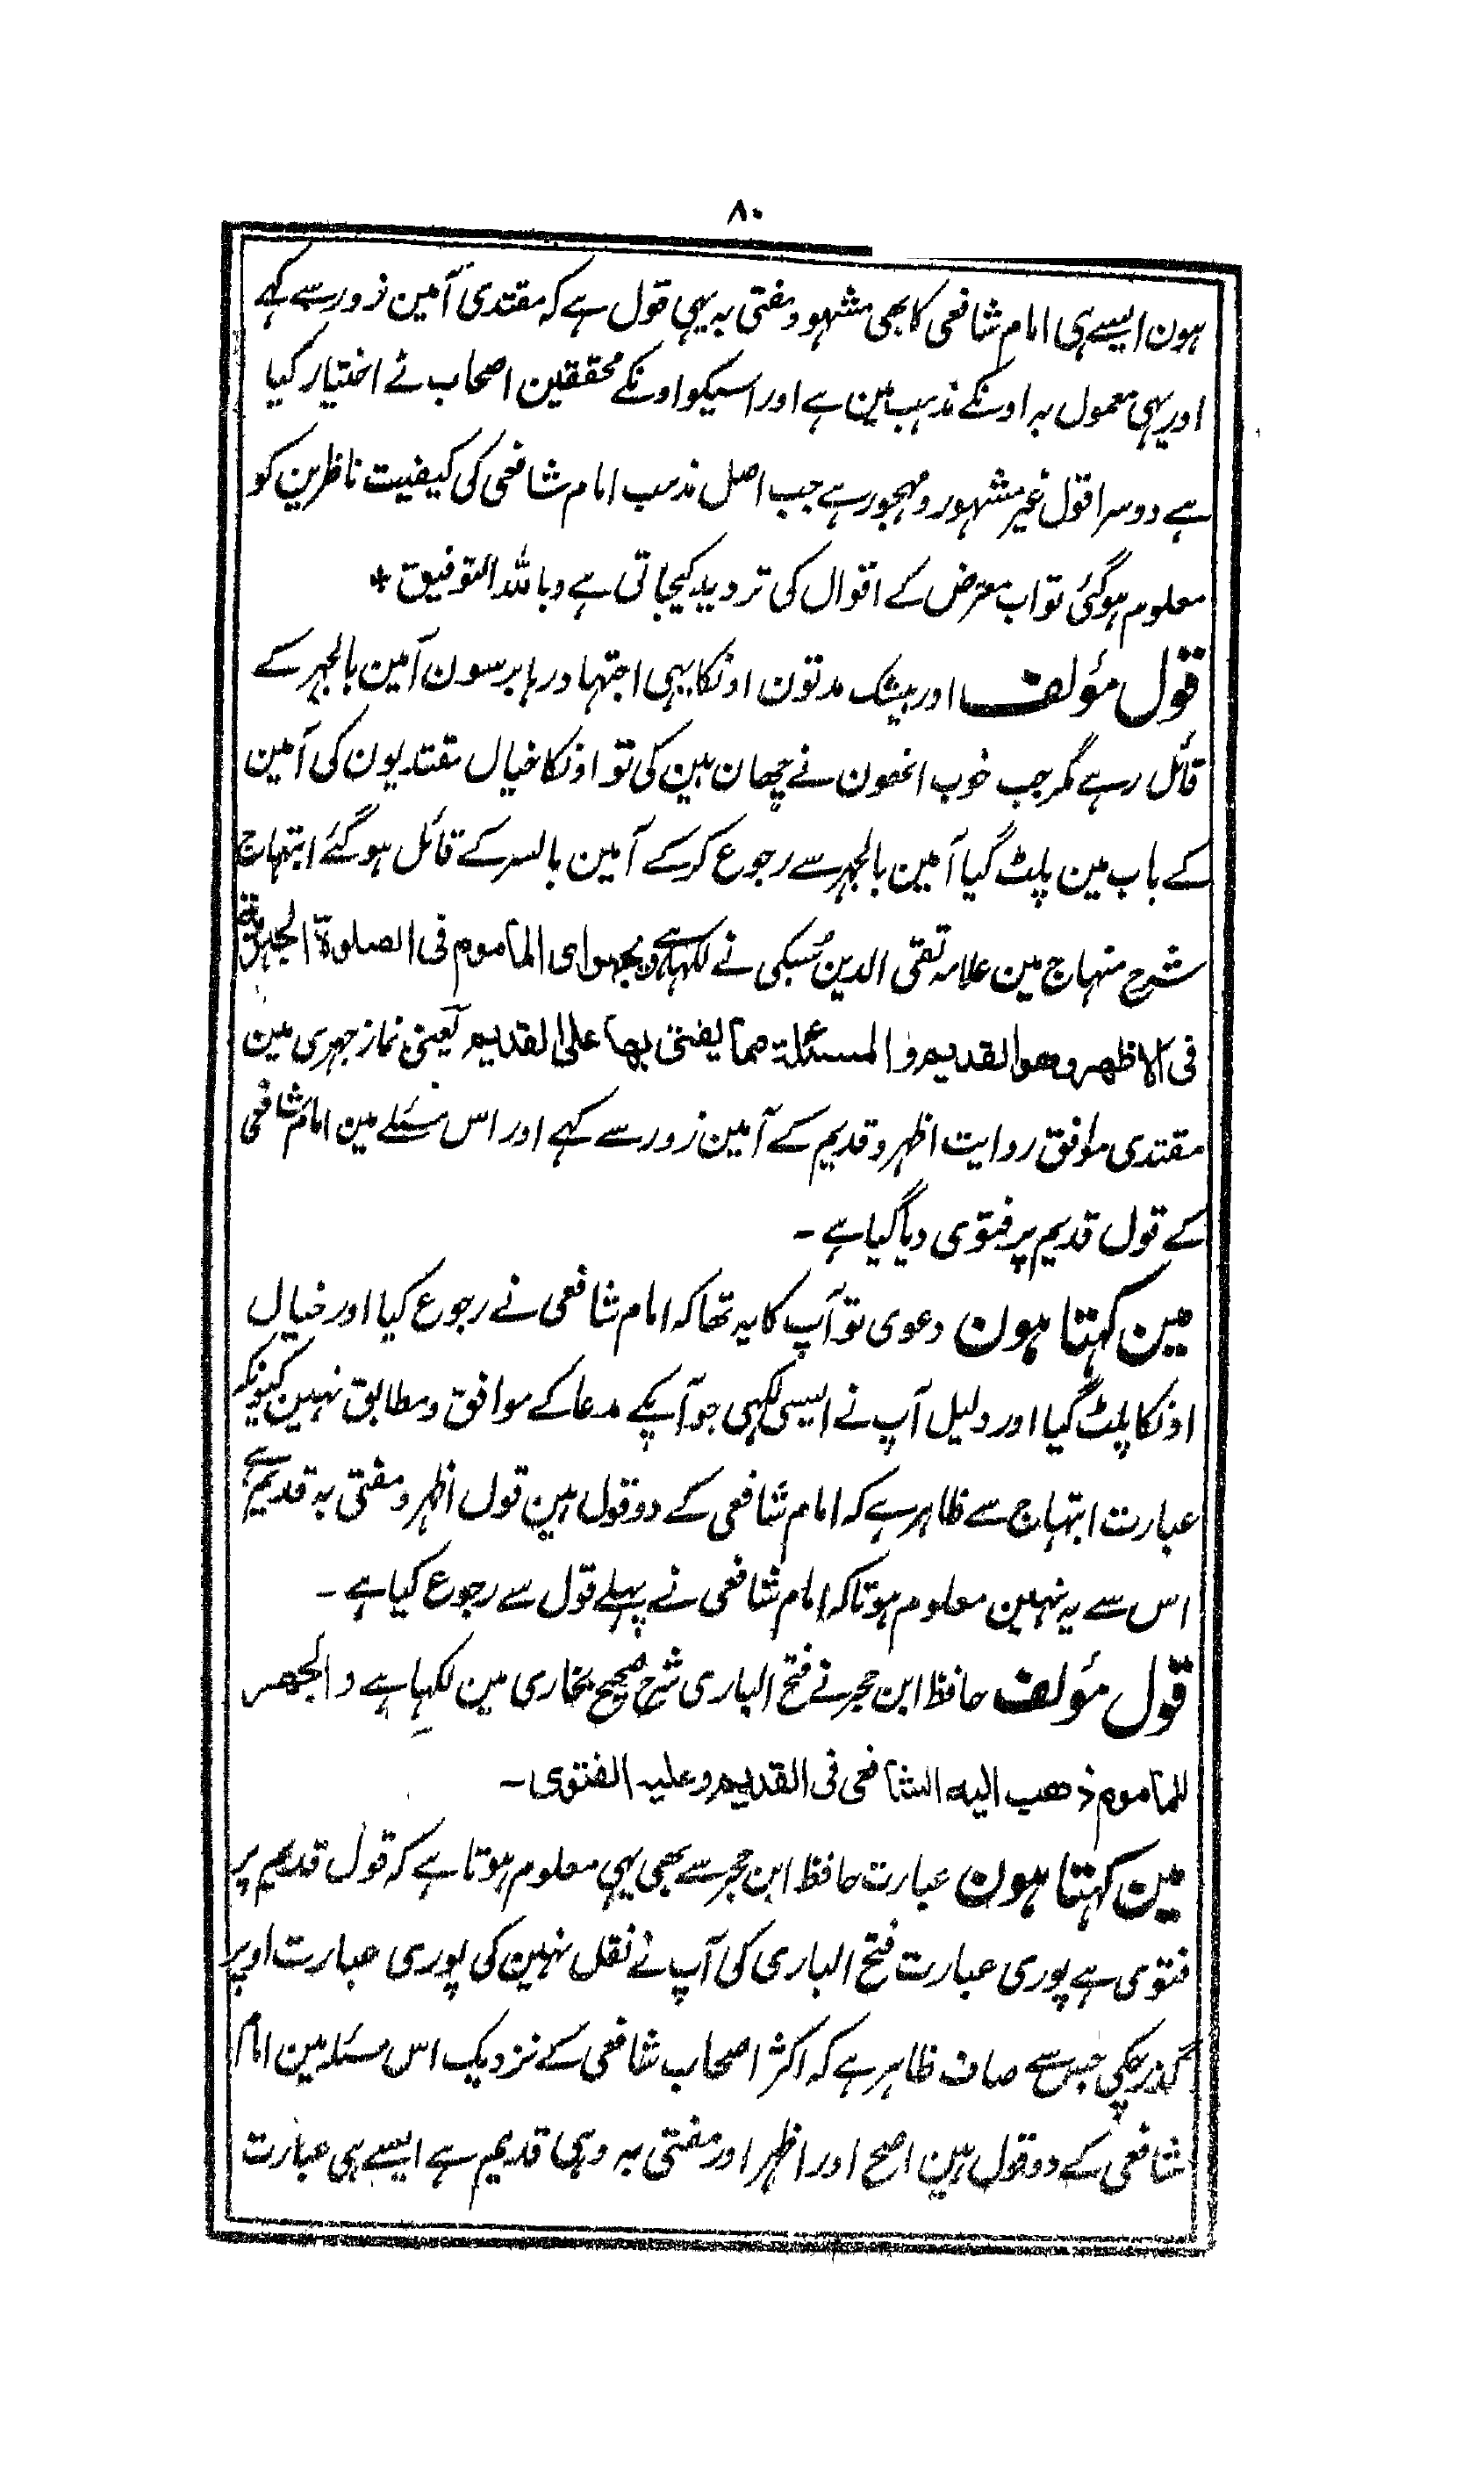 ۸۰
ہون ایسے ہی امام شافعی کا بھی مشہو و مفتی بہ یہی قول ہے کہ مقتدی آمین زور سے کہے
اور یہی معمول بہ اونکے مذہب مین ہے اور اسیکو اونکے محققین اصحاب نے اختیار کیا
ہے دوسرا قول غیر مشہور و مہجور ہے جب اصل مذہب امام شافعی کی کیفیت ناظرین کو
معلوم ہوگئی تو اب معترض کے اقوال کی تردید کیجاتی ہے وباللہ التوفیق *
قول مؤلف اور بیشک مدتون اونکا یہی اجتہاد رہا برسون آمین بالجہر کے
قائل رہے مگر جب خوب انھون نے چھان بین کی تو اونکا خیال مقتدیون کی آمین
کے باب مین پلٹ گیا آمین بالجہر سے رجوع کرکے آمین بالسر کے قائل ہوگئے ابتہاج
شرح منہاج مین علامہ تقی الدین سُبکی نے لکہا ہے ویجہر ای الماموم فی الصلوۃ الجہریۃ
فی الاظہر وھو القدیم والمسئلۃ مما یفتی بھا علی القدیم یعنی نماز جہری مین
مقتدی موافق روایت اظہر و قدیم کے آمین زور سے کہے اور اس مسئلے مین امام شافعی
کے قول قدیم پر فتوی دیا گیا ہے ۔
مین کہتا ہون دعوی تو آپ کا یہ تھا کہ امام شافعی نے رجوع کیا اور خیال
اونکا پلٹ گیا اور دلیل آپ نے ایسی لکہی جو آپکے مدعا کے موافق و مطابق نہین کیونکہ
عبارت ابتہاج سے ظاہر ہے کہ امام شافعی کے دو قول ہین قول اظہر و مفتی بہ قدیم ہے
اس سے یہ نہین معلوم ہوتا کہ امام شافعی نے پہلے قول سے رجوع کیا ہے ۔
قول مؤلف حافظ ابن حجر نے فتح الباری شرح صحیح بخاری مین لکہا ہے والجھر
للماموم ذھب الیہ الشافعی فی القدیم وعلیہ الفتوی ۔
مین کہتا ہون عبارت حافظ ابن حجر سے بھی یہی معلوم ہوتا ہے کہ قول قدیم پر
فتوی ہے پوری عبارت فتح الباری کی آپ نے نقل نہین کی پوری عبارت اوپر
گذر چکی جس سے صاف ظاہر ہے کہ اکثر اصحاب شافعی کے نزدیک اس مسئلہ مین امام
شافعی کے دو قول ہین اصح اور اظہر اور مفتی بہ وہی قدیم ہے ایسے ہی عبارت